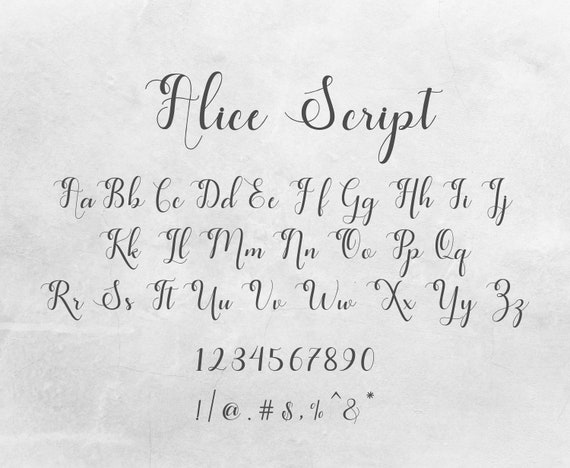 Alice Script
Aa Bb Cc Dd Ee Ff Gg Hh Ii Jj
Kk Ll Mm Nn Oo Pp Qq
Rr Ss Tt Uu Vv Ww Xx Yy Zz
1234567890
!/@.#$,%^&*